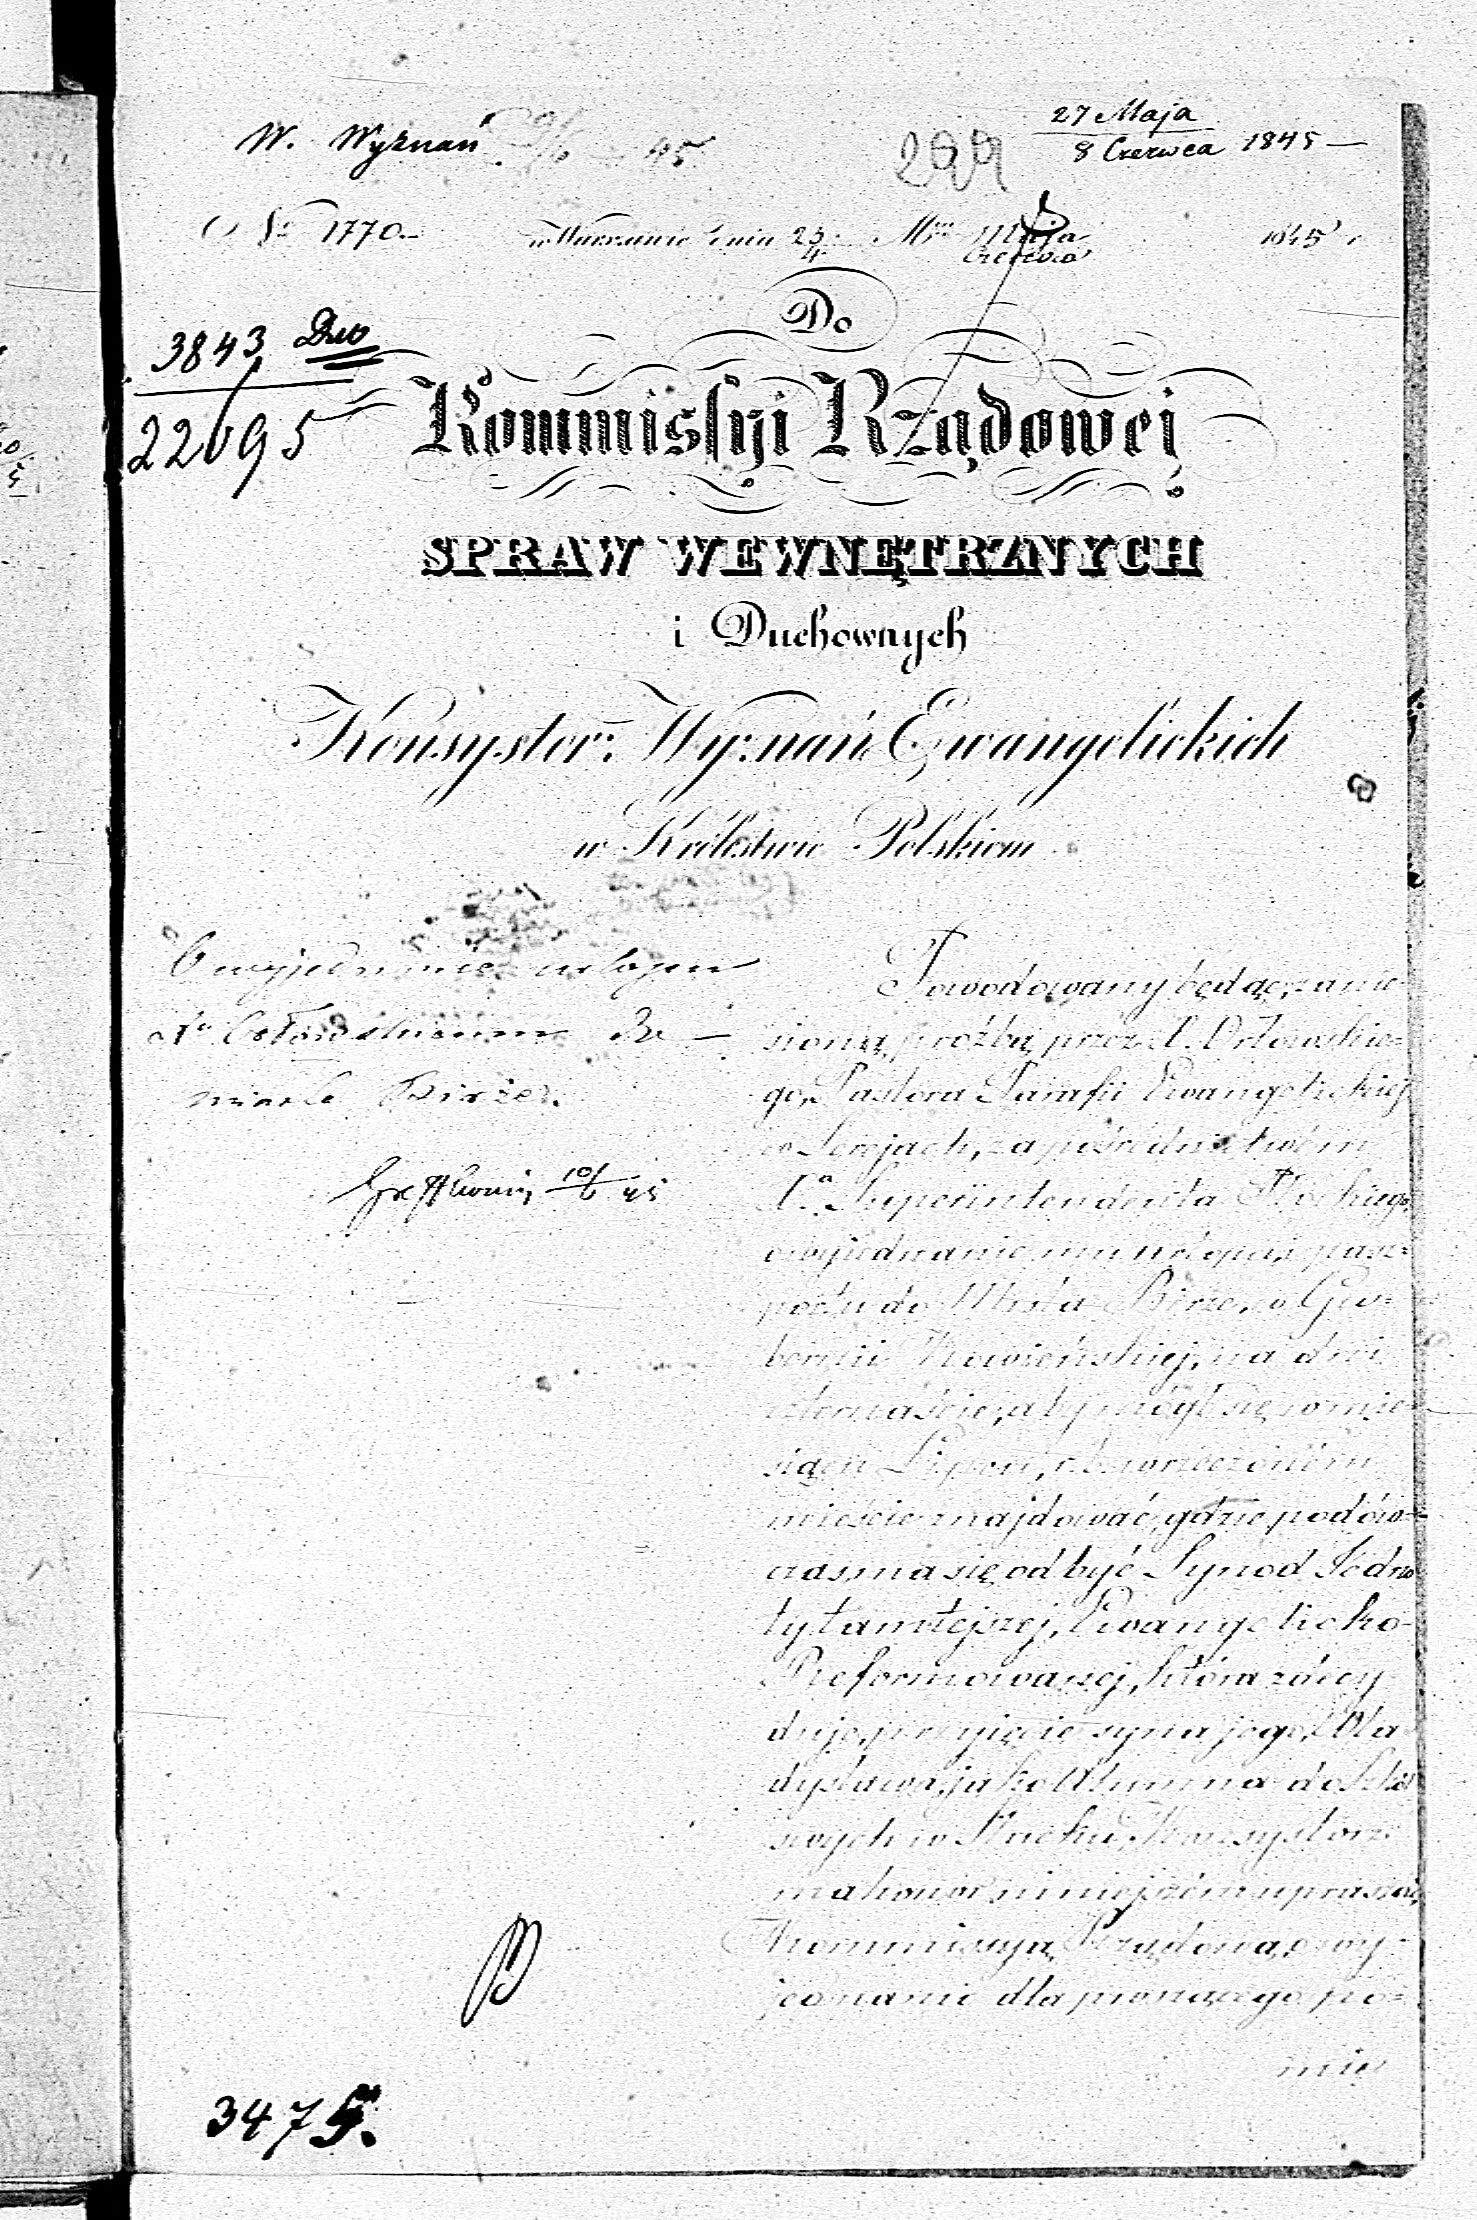 W. Wyznań 45
27 Maja
8 Czerwca 1845
299
No 1770 w Warszawie dnia 23/4 Mca Maja 1845 r.
Czerwca
3843 Duo
22695
Do
Kommissyi Rządowej
SPRAW WEWNĘTRZNYCH
i Duchownych
Konsystorz Wyznań Ewangelickich
w Królestwie Polskiém
O wyjednanie urlopu
Xu Orłowskiemu do
miasta Birże.
10/6 45
Powodowany będąc, zanie-
sioną proźbą przez X. Orłowskie-
go, Pastora Parafii Ewangelickiej
w Serejach, za pośrednictwém
Xa Superintendenta
o wyjednanie mu urlopu i pasz-
portu do Miasta Birże, w Gu-
bernii Kowieńskiej, na dni
czternaście, aby mógł się w mie-
siącu Lipcu, r. b. w rzeczoném
mieście znajdować, gdzie podów-
czas ma się odbyć Synod Jedno
ty tamtejszej, Ewangelicko-
Reformowanej, która zdecy
duje przyjęcie syna jego, Wła
dysława, jako Alumna do Szkół
swych w Słucku, Konsystorz
ma honor niniejszém upraszać
Kommissyą Rządową, o wy-
jednanie dla proszącego po-
mie
3475.